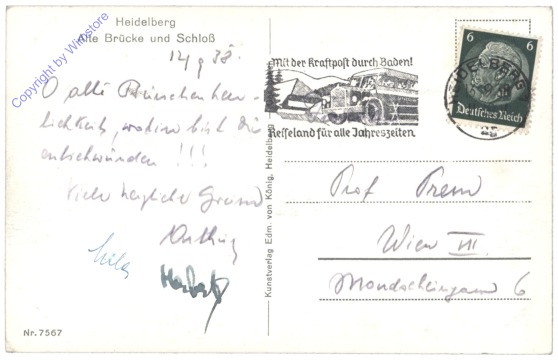 Heidelberg
Alte Brücke und Schloß
Copyright by Winstore
12/9 38.
O alte Burschenherr-
lichkeit, wohin bist Du
entschwunden !!!
Viele herzliche Grüsse
Herbert
Mit der Kraftpost durch Baden!
Reiseland für alle Jahreszeiten
6 6
HEIDELBERG
Deutsches Reich
Prof
Wien III.
6
Kunstverlag Edm. von König, Heidelberg
Nr. 7567